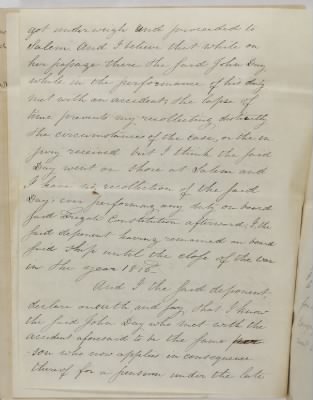 got underweigh and proceeded to
Salem and I believe that while on
her passage there the said John Day
while in the performance of his duty
met with an accident; the lapse of
time prevents my recollecting distinctly
the circumstances of the case, or the in
jury received but I think the said
Day went on shore at Salem and
I have no recollection of the said
Day's ever performing any duty on board
said Frigate Constitution afterward; I the
said deponent having remained on board
said ship until the close of the war
in the year 1815.
And I the said deponent,
declare on oath and say, that I know
the said John Day who met with the
accident aforesaid to be the same per
son who now applies in consequence
thereof for a pension under the late